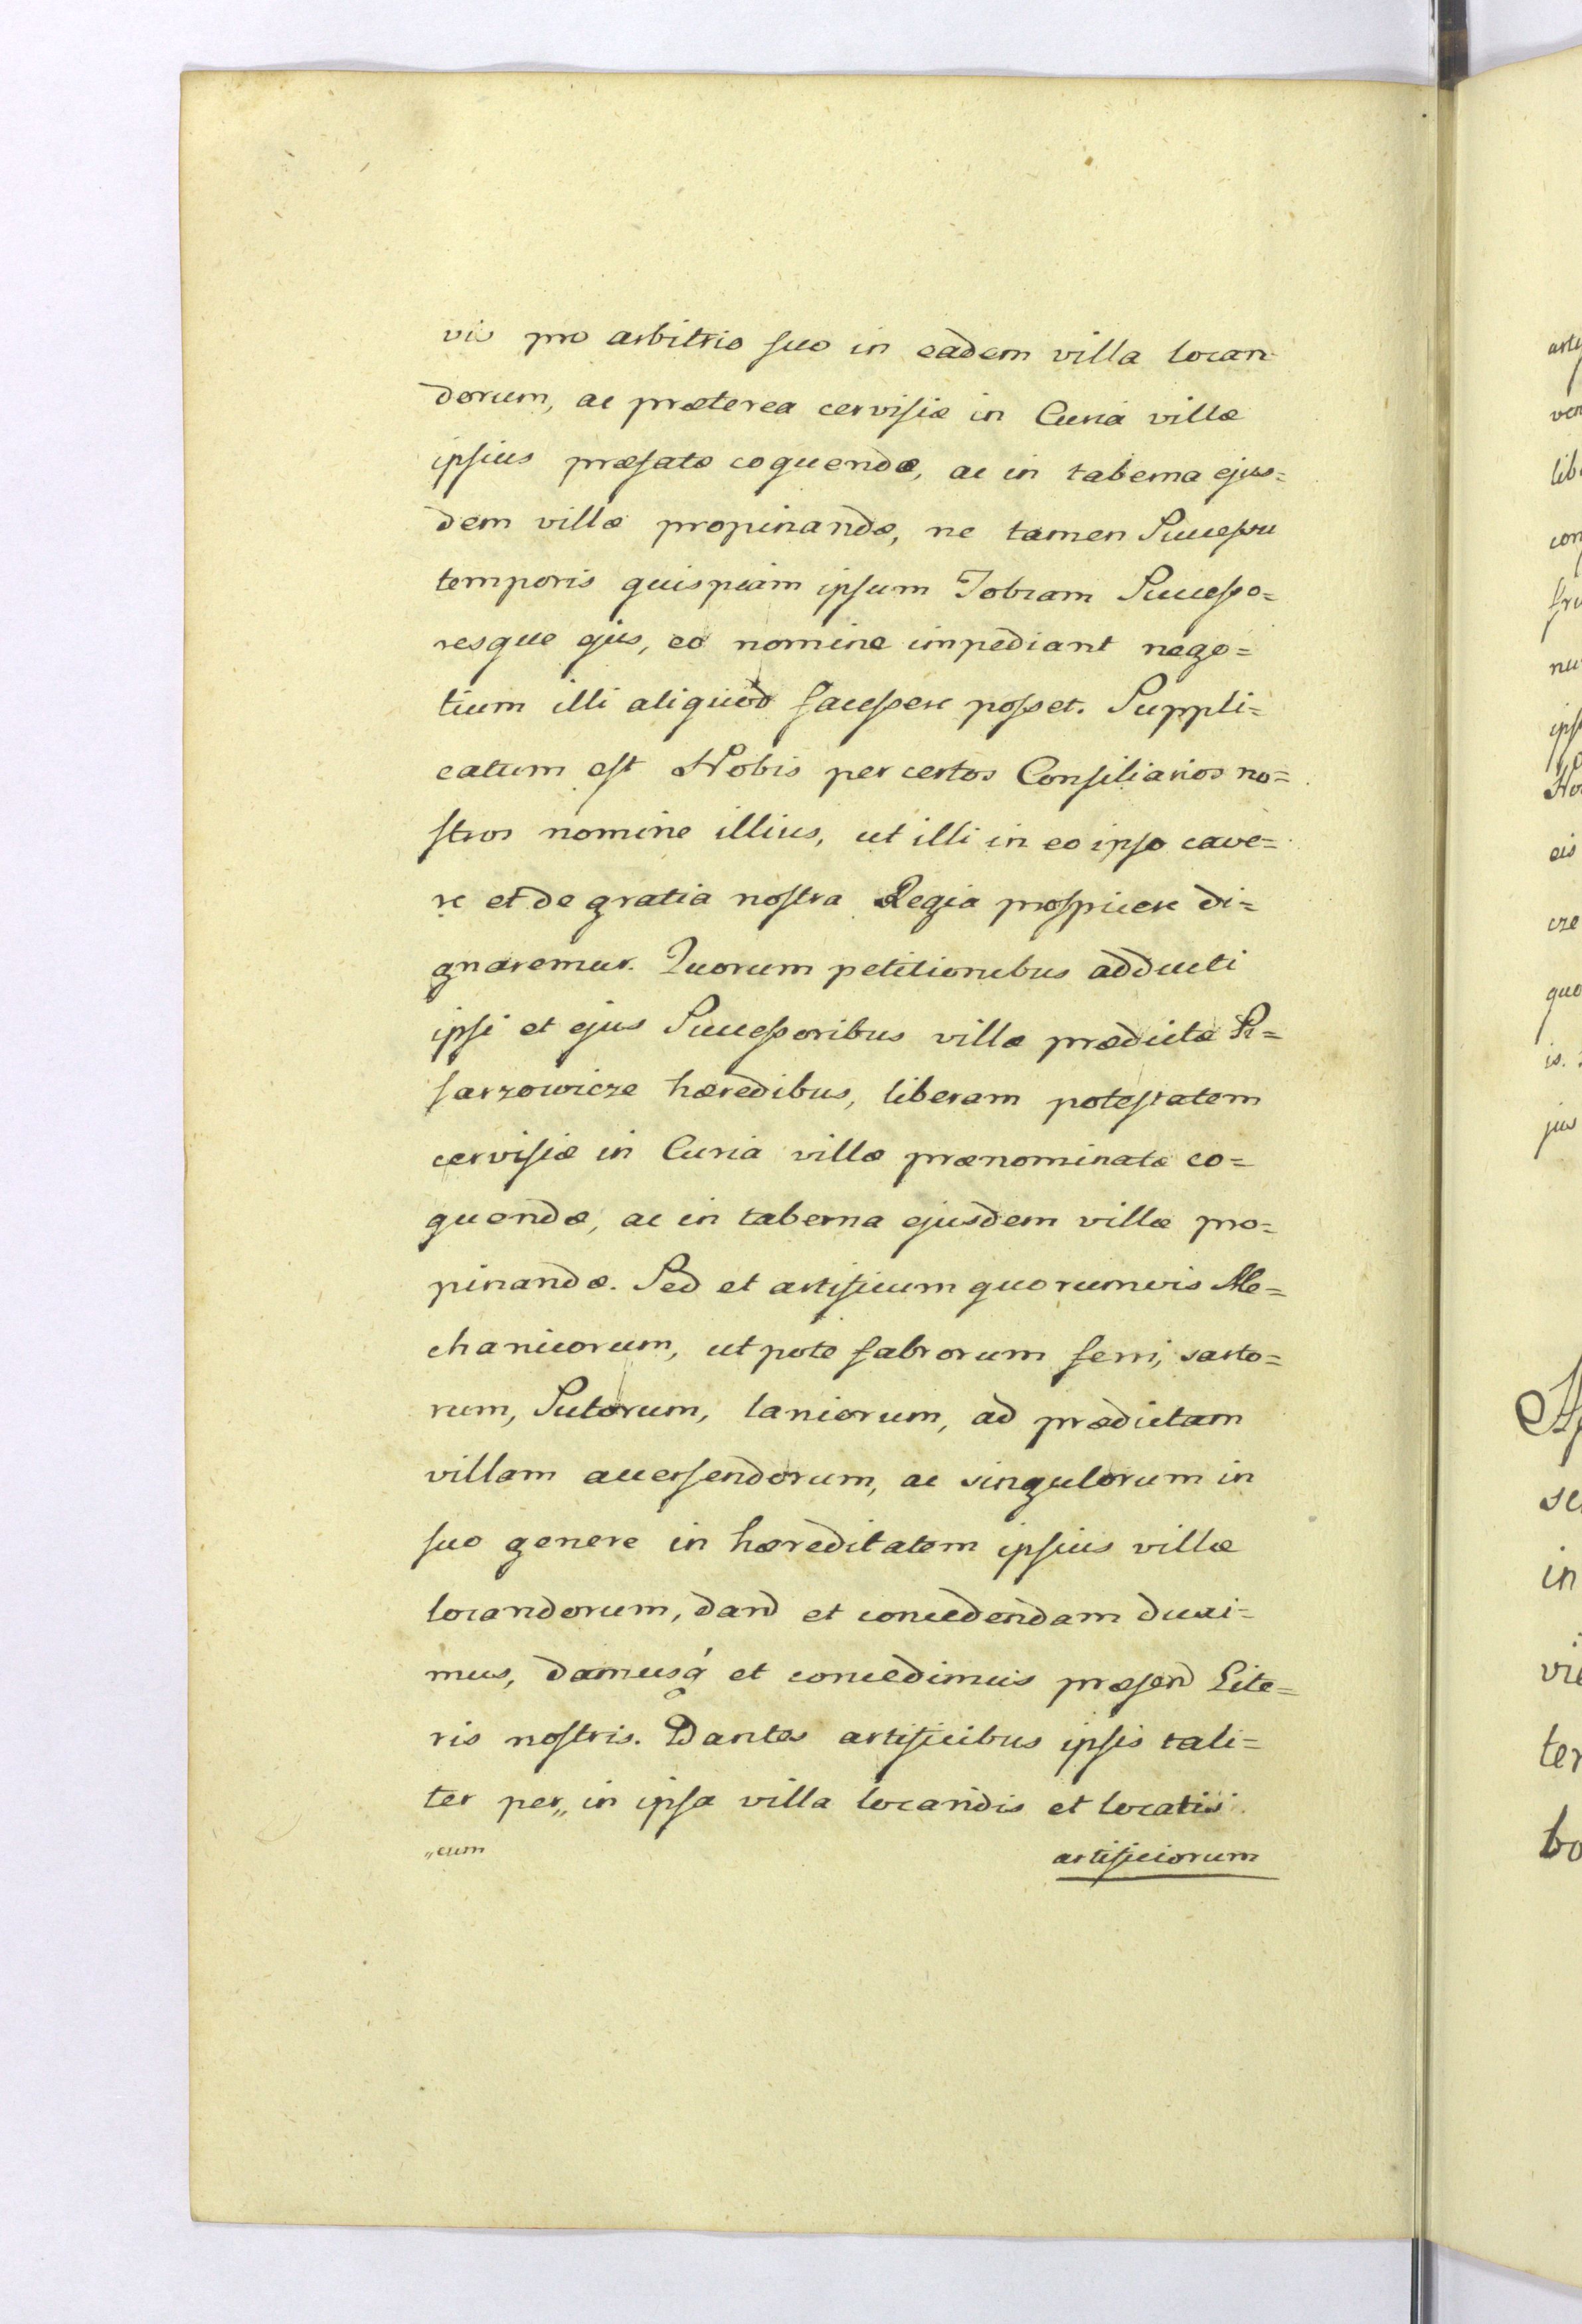 vis pro arbitrio suo in eadem villa locan
dorum, ac præterea cervisiæ in Curia villæ
ipsius præfatæ coquendæ, ac in taberna ejus=
dem villæ propinandæ, ne tamen Successu
temporis quispiam ipsum Jobram Successo=
resque ejus, eo nomine impediant nego=
tium illi aliquod facessere posset. Suppli=
catum est Nobis per certos Consiliarios no=
stros nomine illius, ut illi in eo ipso cave=
re et de gratia nostra Regia prospicere di=
gnaremur. Quorum petitionibus adducti
ipsi et ejus Successoribus villæ prædictæ Pi=
sarzowicze hæredibus, liberam potestatem
cervisiæ in Curia villæ prænominatæ co=
quendæ, ac in taberna ejusdem villæ pro=
pinandæ. Sed et artificum quorumvis Me=
chanicorum, utpote fabrorum ferri, sarto=
rum, Sutorum, laniorum, ad prædictam
villam accersendorum, ac singulorum in
suo genere in hæreditatem ipsius villæ
locandorum, dand et concedendam duxi=
mus, damusq́ et concedimus præsend Lite=
ris nostris. Dantes artificibus ipsis tali=
ter per„ in ipsa villa locandis et locatis
„eum
artificiorum